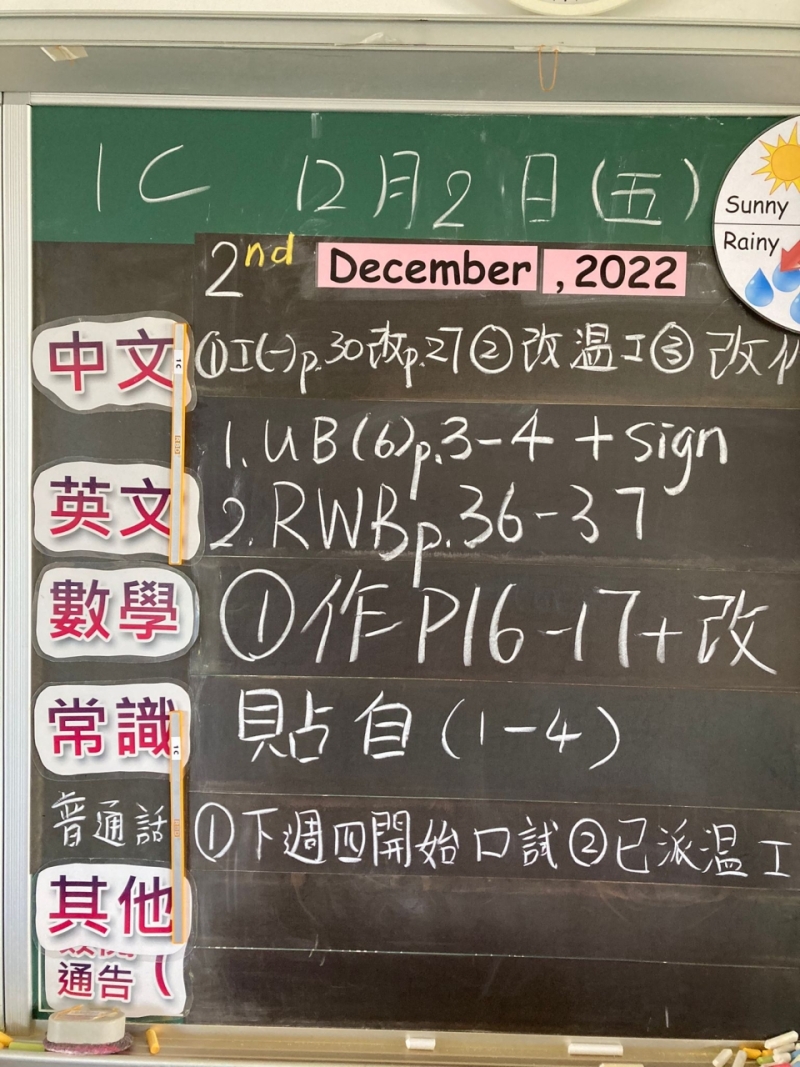 1C 12月2日(五)
Sunny
Rainy
2nd December, 2022
中文 ①工(一)p.30改p.27②改溫工③改
英文
1. UB(6)p.3-4 + sign
2. RWB p.36-37
數學 ①作P16-17+改
常識 貼自(1-4)
普通話 ①下週四開始口試②已派溫工
其他
通告(
1C
1C